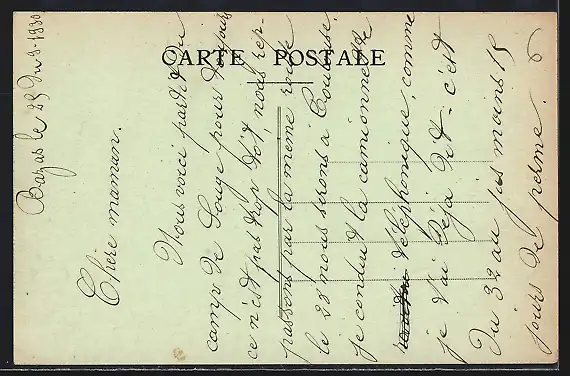 CARTE POSTALE
Bazas le 25 Juin 1930
Chère maman.
Nous voici parti du
camp de Souge pour toujours
ce n'est pas trop tôt, nous rep-
passons par la même route
le 28 nous serons à Toulouse.
je conduis la camionnette
téléphonique, comme
je t'ai déjà dit - c'est
Du 32 au jus moins 15
jours de perme. 6